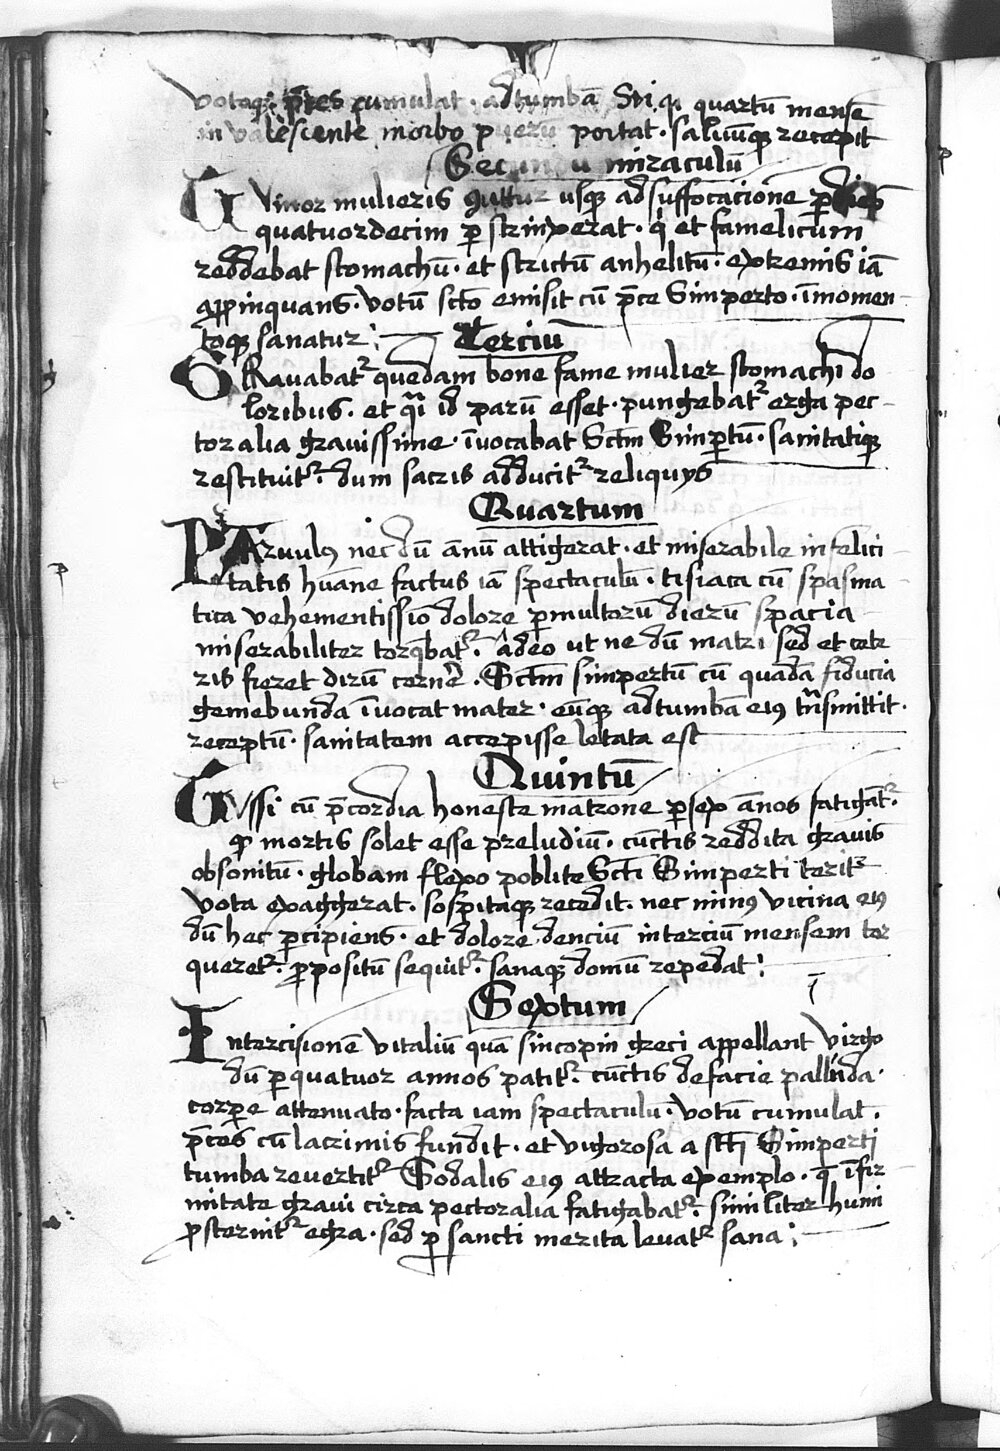 votaqꝫ p̄ces cumulat · ad tumbā Sti qͥ quartū mensē
in valescente morbo puerū portat · saluūqꝫ recepit
Secundū miraculū
Gvinoz mulieris guttur usqꝫ ad suffocacionē ꝑ diep
quatuordecim ꝑstrinxerat · qͥ et famelicum
reddebat stomachū · et strictū anhelitū · extremis iā
aꝓpinquans · votū sctō emisit cū p̄ce Simperto · ī momen
toqꝫ sanatur
Terciū
GRauabatᷣ quedam bone fame mulier stomachi do
loribus · et qͣi id parū esset · pungebatᷣ erga pec
toralia grauissime · īuocabat Sctm̄ Simꝑtū · sanitatiqꝫ
restituitᷣ · dum sacris adducitᷣ reliquijs
Quartum
PARuulꝯ nec dū annū attigerat · et miserabile infelici
tatis hūane factus iā spectaculū · tisiaca cū spasma
tica vehementissīo dolore ꝑ multorū dierū spacia
miserabiliter torq̄batᷣ · Adeo ut ne dū matri sed et cete
ris fieret dirū cernē · Sctm̄ simpertū cū quadā fiducia
gemebunda īuocat mater · eūqꝫ ad tumbā eiꝯ trāsmittit ·
receptū · sanitatem accepisse letata est
Quintū
Gussi cū p̄cordia honeste matrone ꝑ sex annos fatigatᷣ ·
qꝫ mortis solet esse preludiū · cunctis reddita grauis
obsonitū · globam flexo poblite Scti Simperti teritᷣ
vota exaggerat · sospitaqꝫ recedit · nec minꝯ vicina eiꝯ
dū hec ꝑcipiens · et dolore denciū in terciū mensem tor
queretᷣ · ꝓpositū sequitᷣ · sanaqꝫ domū repedat
Sextum
Intercisionē vitaliū quā sincopin greci appellant virgo
dū ꝑ quatuor annos patitᷣ · cunctis de facie pallida ·
corꝑe attenuato · facta iam spectaculū · votū cumulat ·
p̄ces cū lacrimis fundit · et vigorosa a scti Simperti
tumba revertitᷣ Sodalis eiꝯ attracta exemplo · q̄ īfir
mitate graui circa pectoralia fatigabatᷣ · similiter humi
ꝓsternitᷣ egra · sed ꝑ sancti merita leuatᷣ sana